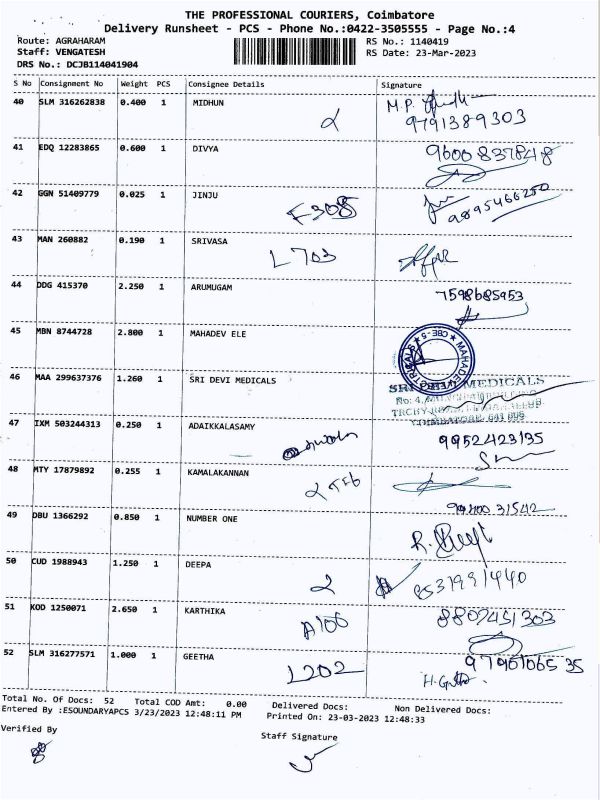 THE PROFESSIONAL COURIERS, Coimbatore
Delivery Runsheet - PCS - Phone No.:0422-3505555 - Page No.:4
Route: AGRAHARAM RS No.: 1140419
Staff: VENGATESH RS Date: 23-Mar-2023
DRS No.: DCJB114041904
S No Consignment No Weight PCS Consignee Details Signature
40 SLM 316262838 0.400 1 MIDHUN M.P.
9791389303
41 EDQ 12283865 0.600 1 DIVYA 9600837848
42 GGN 51409779 0.025 1 JINJU F308 9895466250
43 MAN 260882 0.190 1 SRIVASA L703
44 DDG 415370 2.250 1 ARUMUGAM 7598685953
45 MBN 8744728 2.800 1 MAHADEV ELE CBE-5
46 MAA 299637376 1.260 1 SRI DEVI MEDICALS SRI DEVI MEDICALS
No: 4,
47 IXM 503244313 0.250 1 ADAIKKALASAMY 9952423135
48 MTY 17879892 0.255 1 KAMALAKANNAN
49 DBU 1366292 0.850 1 NUMBER ONE
50 CUD 1988943 1.250 1 DEEPA 2 8531991440
51 KOD 1250071 2.650 1 KARTHIKA A106 8807451303
52 SLM 316277571 1.000 1 GEETHA L202
Total No. Of Docs: 52 Total COD Amt: 0.00 Delivered Docs: Non Delivered Docs:
Entered By :ESOUNDARYAPCS 3/23/2023 12:48:11 PM Printed On: 23-03-2023 12:48:33
Verified By Staff Signature